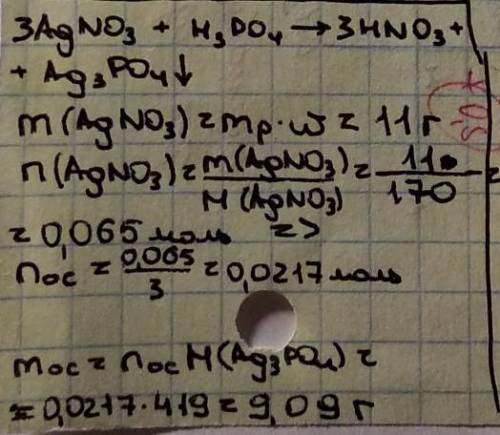 3AgNO₃ + H₃PO₄ → 3HNO₃ +
+ Ag₃PO₄↓
m(AgNO₃) = mp·ω = 11г
n(AgNO₃) = m(AgNO₃)/M(AgNO₃) = 11/170 =
= 0,065 моль =>
nос = 0,065/3 = 0,0217 моль
mос = nос M(Ag₃PO₄) =
= 0,0217·419 = 9,09 г